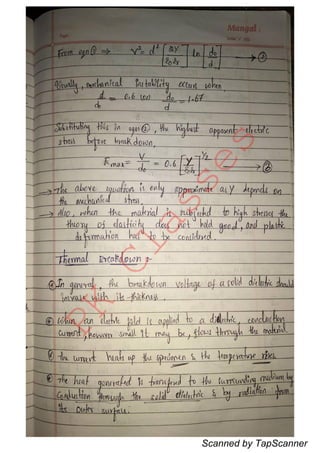 Page:
Mangal :
From eqn ① ⇒ V² = d² [2Y / ε0 εr] ln [d0 / d] → ②
Usually, mechanical instability occurs when,
d / d0 = 0.6 (or) d0 / d = 1.67
Substituting this in eqn ②, the highest apparent electric
stress before break down,
Emax = V / d0 = 0.6 [Y / ε0 εr]^1/2 →
→ The above equation is only approximate as Y depends on
the mechanical stress.
→ Also, when the material is subjected to high stresses the
theory of elasticity does not hold good, and plastic
deformation has to be considered.
Thermal Breakdown :-
In general, the breakdown voltage of a solid dielectric should
increase with its thickness.
When an electric field is applied to a dielectric, conduction
current, however small it may be, flows through the material.
The current heats up the specimen & the temperature rises.
The heat generated is transferred to the surrounding medium by
conduction through the solid dielectric & by radiation from
its outer surface.
RK Classes
Scanned by TapScanner